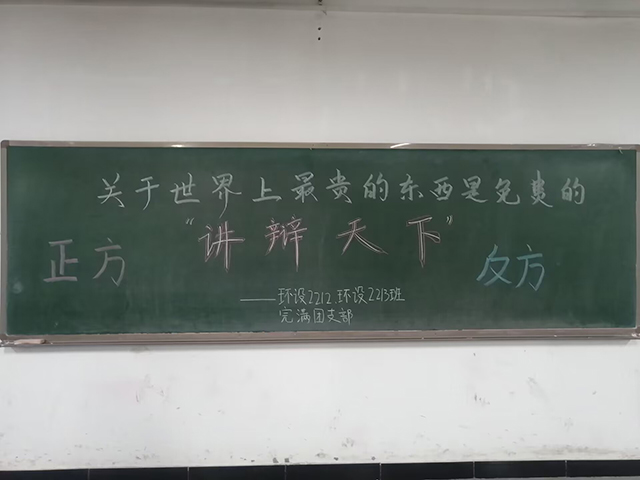 关于世界上最贵的东西是免费的
“讲辩天下”
正方
反方
——环设2212.环设2213班
完满团支部